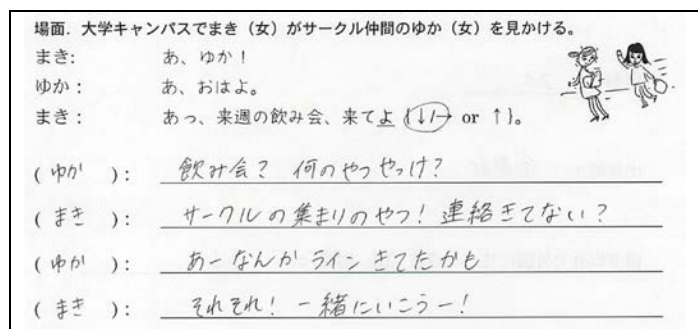 場面．大学キャンパスでまき（女）がサークル仲間のゆか（女）を見かける。
まき：　あ、ゆか！
ゆか：　あ、おはよ。
まき：　あっ、来週の飲み会、来てよ {↓/→ or ↑}。
( ゆか )：　飲み会？ 何のやつやっけ？
( まき )：　サークルの集まりのやつ！ 連絡きてない？
( ゆか )：　あーなんか ライン きてたかも
( まき )：　それそれ！ 一緒にいこうー！